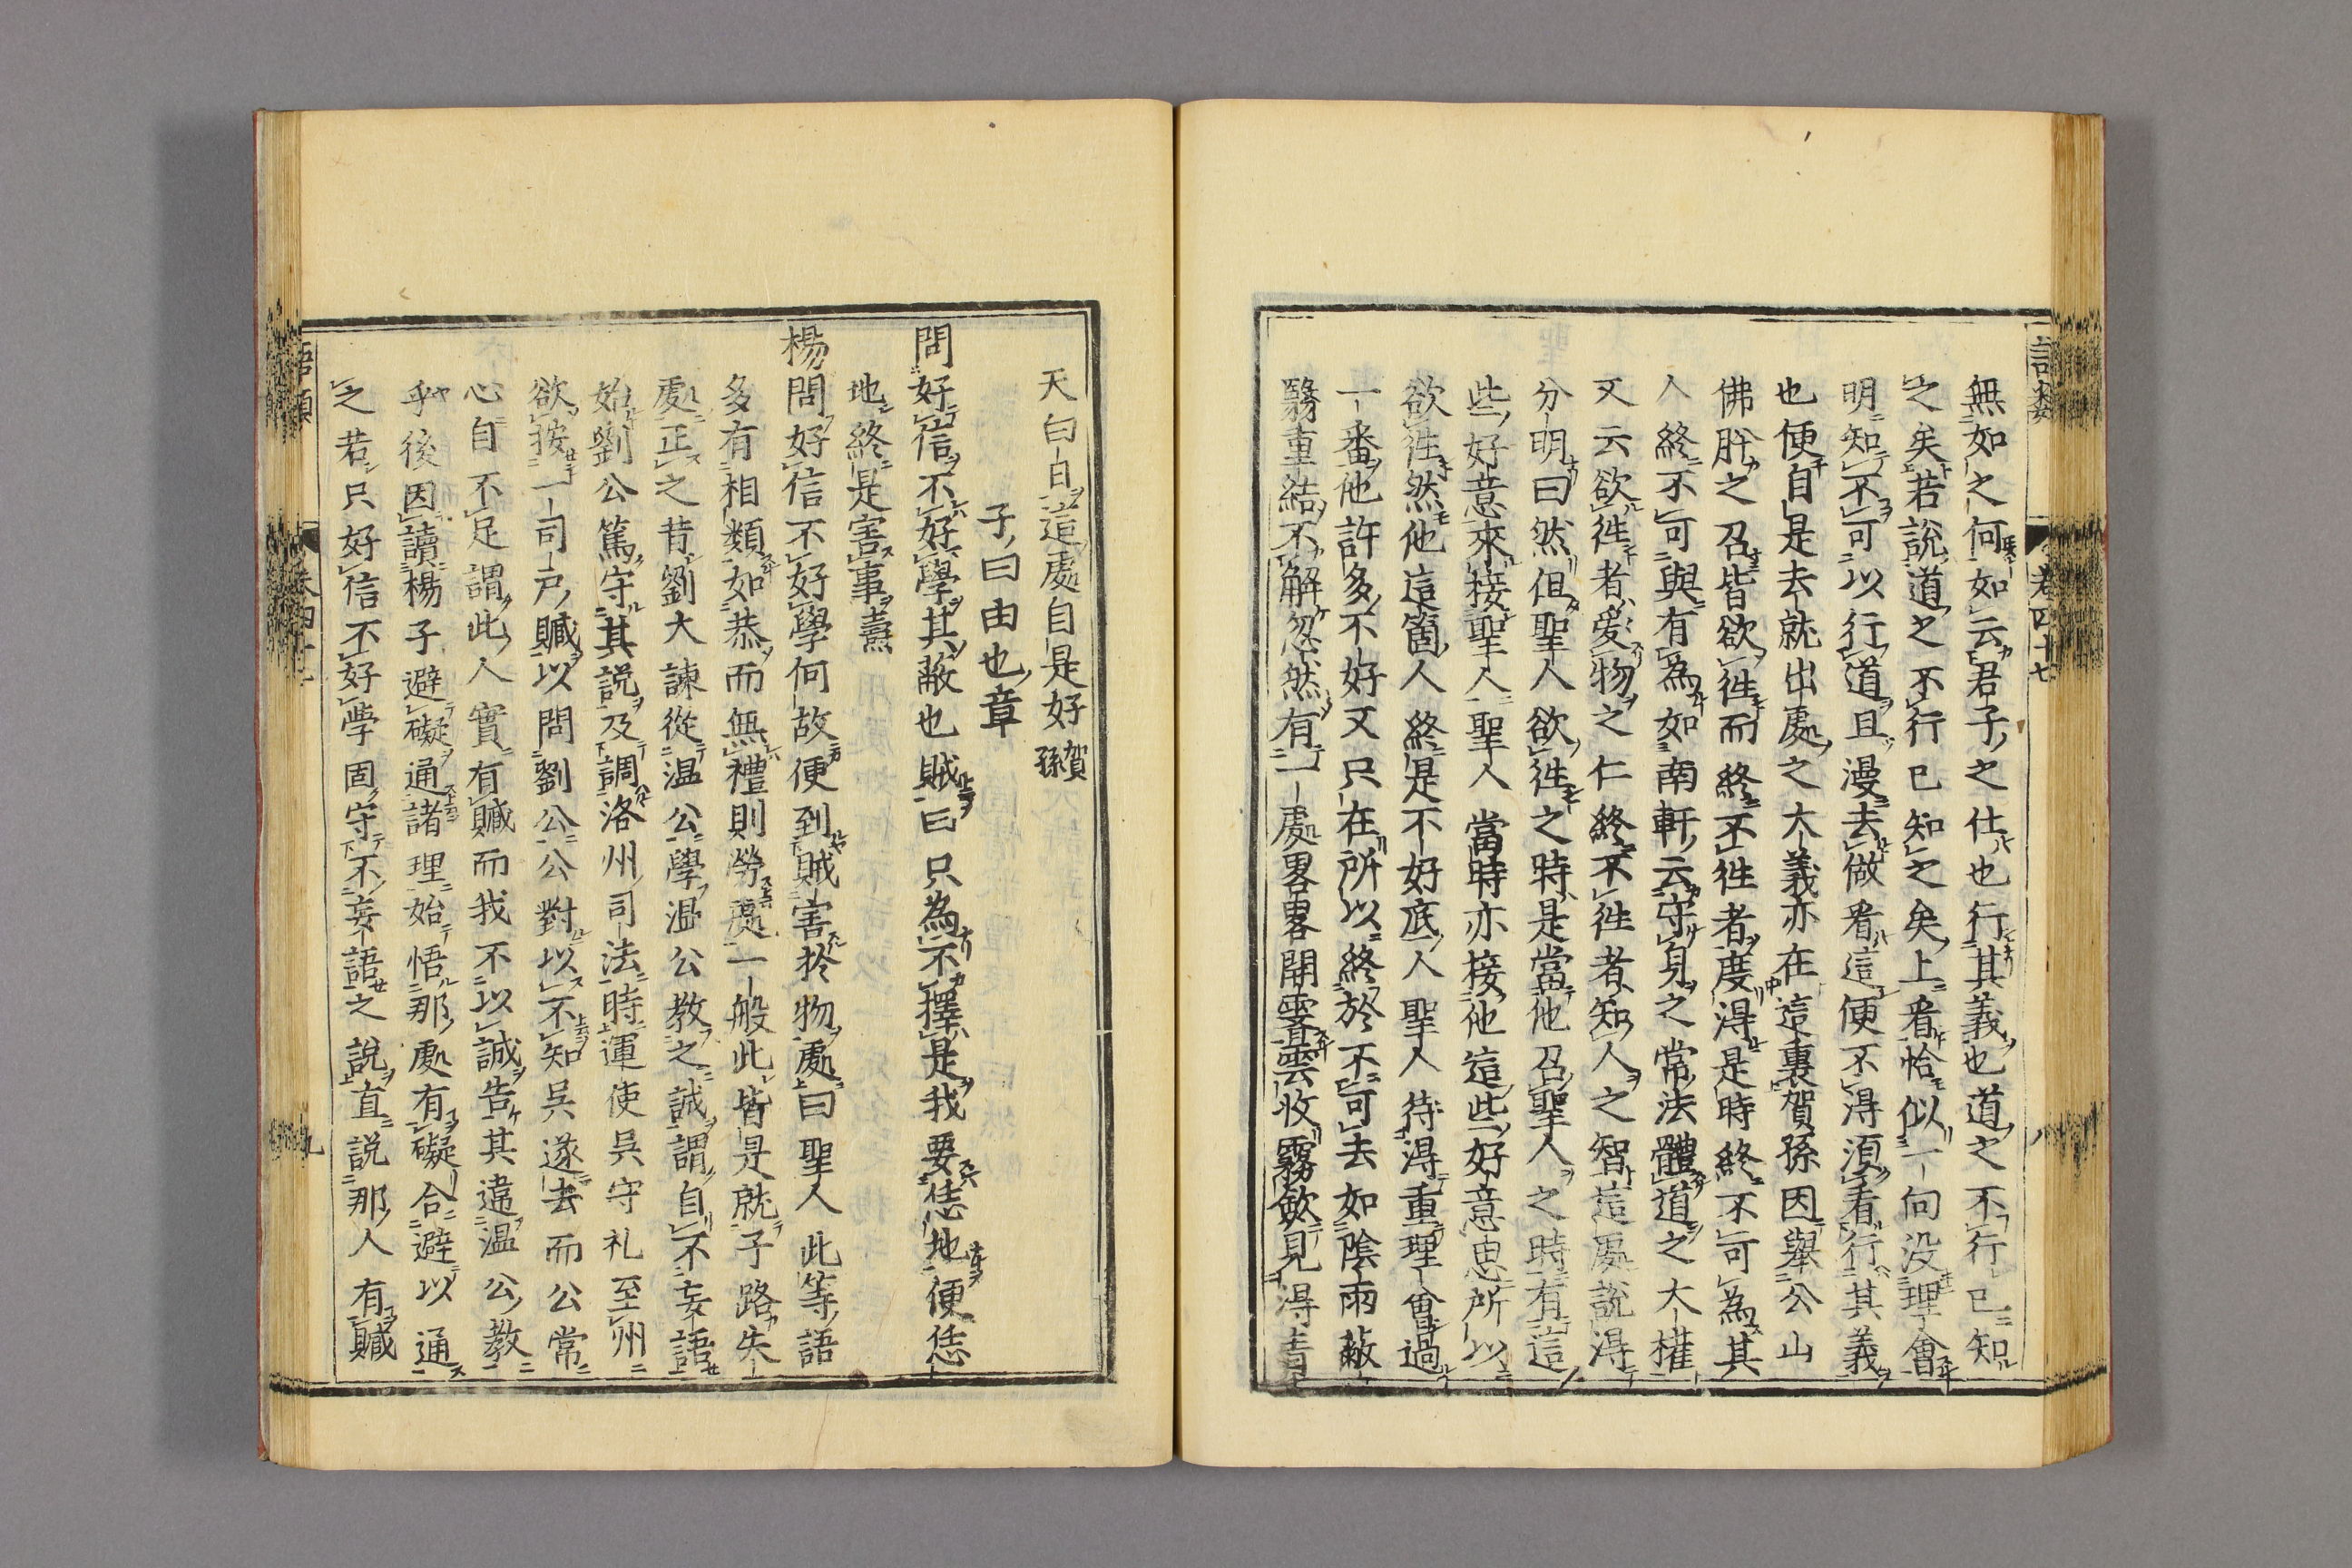 無如之何如云君子之仕也行其義也道之不行已知
之矣若說道之不行已知之矣上看恰似一向没理會
明知不可以行道且漫去做看這便不得須看行其義
也便自是去就出處之大義亦在這裏賀孫因舉公山
佛肸之召皆欲徃而終不徃者度得是時終不可為其
人終不可與有為如南軒云守身之常法體道之大權
又云欲徃者愛物之仁終不徃者知人之智這處說得
分明曰然但聖人欲徃之時是當他召聖人之時有這
些好意來接聖人聖人當時亦接他這些好意思所以
欲徃然他這箇人終是不好底人聖人待得重理會過
一番他許多不好又只在所以終於不可去如陰雨蔽
翳重結不解忽然有一處畧畧開霽雲收霧歛見得青
天白日這處自是好賀孫
子曰由也章
問好信不好學其蔽也賊曰只為不擇是我要恁地便恁
地終是害事燾
楊問好信不好學何故便到賊害於物處曰聖人此等語
多有相類如恭而無禮則勞處一般此皆是就子路失
處正之昔劉大諫從溫公學溫公教之誠謂自不妄語
始劉公篤守其說及調洛州司法時運使吳守礼至州
欲按一司户贓以問劉公公對以不知吳遂去而公常
心自不足謂此人實有贓而我不以誠告其違溫公教
乎後因讀楊子避礙通諸理始悟那處有礙合避以通
之若只好信不好學固守不妄語之說直說那人有贓